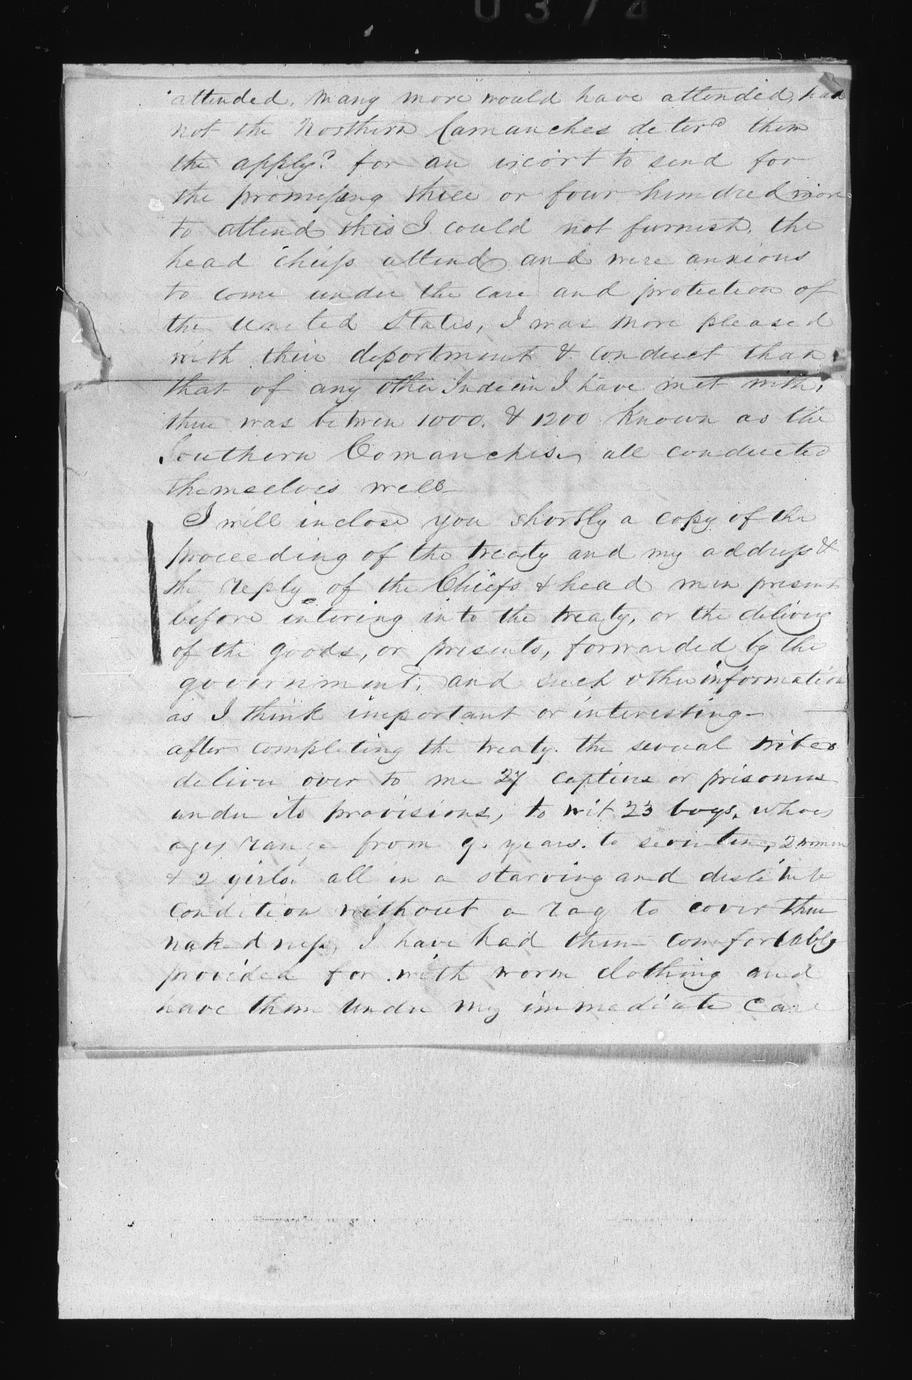 attended, many more would have attended, had
not the Northern Camanches deter'd them
the apply'd for an escort to send for
the promissing three or four hundred more
to attend this I could not furnish, the
head chiefs attend and were anxious
to come under the care and protection of
the United States, I was more pleased
with their deportment & conduct than
that of any other Indian I have met with,
there was between 1000. & 1200 Known as the
Southern Comanchise, all conducted
themselves well
I will inclose you shortly a copy of the
proceeding of the treaty and my address &
the reply of the Chiefs & head men present
before intering into the treaty, or the delivery
of the goods, or presents, forwarded by the
government, and such other information
as I think important or interesting—
after completing the treaty. the several tribes
deliver over to me 27 captives or prisoners
under its provisions, to wit 23 boys, whoes
ages, range from 9. years. to seventeen, 2 women
& 2 girls. all in a starving and destitute
condition without a rag to cover their
nakedness, I have had them comfortably
provided for with worm clothing and
have them under my immediate care